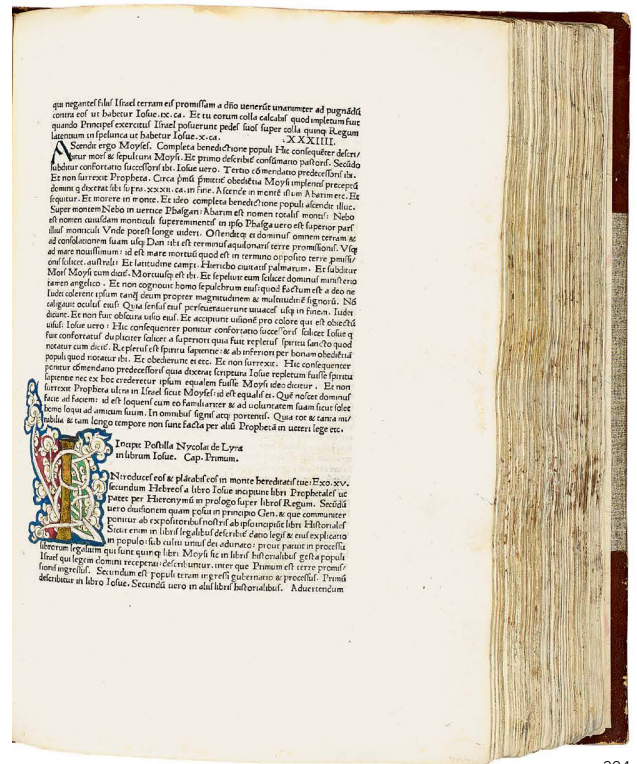 qui negantes filiis Israel terram eis promissam a dño uenerūt unanimiter ad pugnādū
contra eos ut habetur Iosue.ix.ca. Et tu eorum colla calcabis quod impletum fuit
quando Principes exercitus Israel posuerunt pedes suos super colla quinq Regum
latentium in spelunca ut habetur Iosue.x.ca. .XXXIIII.
AScendit ergo Moyses. Completa benedictione populi Hic consequēter descri/
bitur mors & sepultura Moysi. Et primo describit consūmatio pastoris. Secūdo
subditur confortatio successoris ibi. Iosue uero. Tertio cōmendatio predecessoris ibi.
Et non surrexit Propheta. Circa pmū pmittit obediētia Moysi implentis preceptū
domini q dixerat sibi supra.xxxii.ca. in fine. Ascende in monte istum Abarim etc. Et
sequitur. Et morere in monte. Et ideo completa benedictione populi ascendit illuc.
Super montem Nebo in uertice Phasgan: Abarim est nomen totalis montis: Nebo
est nomen cuiusdam monticuli supereminentis in ipso Phasga uero est superior pars
illius monticuli Vnde potest longe uideri. Ostenditq ei dominus omnem terram &
ad consolationem suam usq Dan ibi est terminus aquilonaris terre promissionis. Vsq
ad mare nouissimum: id est mare mortuū quod est in termino opposito terre pmissi/
onis scilicet australi: Et latitudine campi. Hiericho ciuitatis palmarum. Et subditur
Mors Moysi cum dicit. Mortuusq est ibi. Et sepeliuit eum scilicet dominus ministerio
tamen angelico. Et non cognouit homo sepulchrum eius: quod factum est a deo ne
Iudei colerent ipsum tanq deum propter magnitudinem & multitudinē signorū. Nō
caligauit oculus eius: Quia sensus eius perseuerauerunt uiuaces usq in finem. Iudei
dicunt. Et non fuit obscura uisio eius. Et accipiunt uisionē pro colore qui est obiectū
uisus: Iosue uero: Hic consequenter ponitur confortatio successoris scilicet Iosue q
fuit confortatus dupliciter scilicet a superiori quia fuit repletus spiritu sancto quod
notatur cum dicit. Repletus est spiritu sapientie: & ab inferiori per bonam obediētiā
populi quod notatur ibi. Et obedierunt ei etc. Et non surrexit. Hic consequenter
ponitur cōmendatio predecessoris quia dixerat scriptura Iosue repletum fuisse spiritu
sapientie nec ex hoc crederetur ipsum equalem fuisse Moysi ideo dicitur. Et non
surrexit Propheta ultra in Israel sicut Moyses: id est equalis ei. Quē nosset dominus
facie ad faciem: id est loquens cum eo familiariter & ad uoluntatem suam sicut solet
homo loqui ad amicum suum. In omnibus signis atq portentis. Quia tot & tanta mi/
rabilia & tam longo tempore non sunt facta per aliū Prophetā in ueteri lege etc.
Incipit Postilla Nycolai de Lyra
in librum Iosue. Cap. Primum.
INtroduces eos & plātabis eos in monte hereditatis tue: Exo.xv.
secundum Hebreos a libro Iosue incipiunt libri Prophetales ut
patet per Hieronymū in prologo super libros Regum. Secūdū
uero diuisionem quam posui in principio Gen. & que communiter
ponitur ab expositoribus nostris ab ipso incipiūt libri Historiales
Sicut enim in libris legalibus describit datio legis & eius explicatio
in populo: sub cultu unius dei adunato: prout patuit in processu
librorum legalium qui sunt quinq libri Moysi sic in libris historialibus gesta populi
Israel qui legem domini receperat: describuntur. inter que Primum est terre promis/
sionis ingressus. Secundum est populi terram ingressi gubernatio & processus. Primū
describitur in libro Iosue. Secundū uero in aliis libris historialibus. Aduertendum